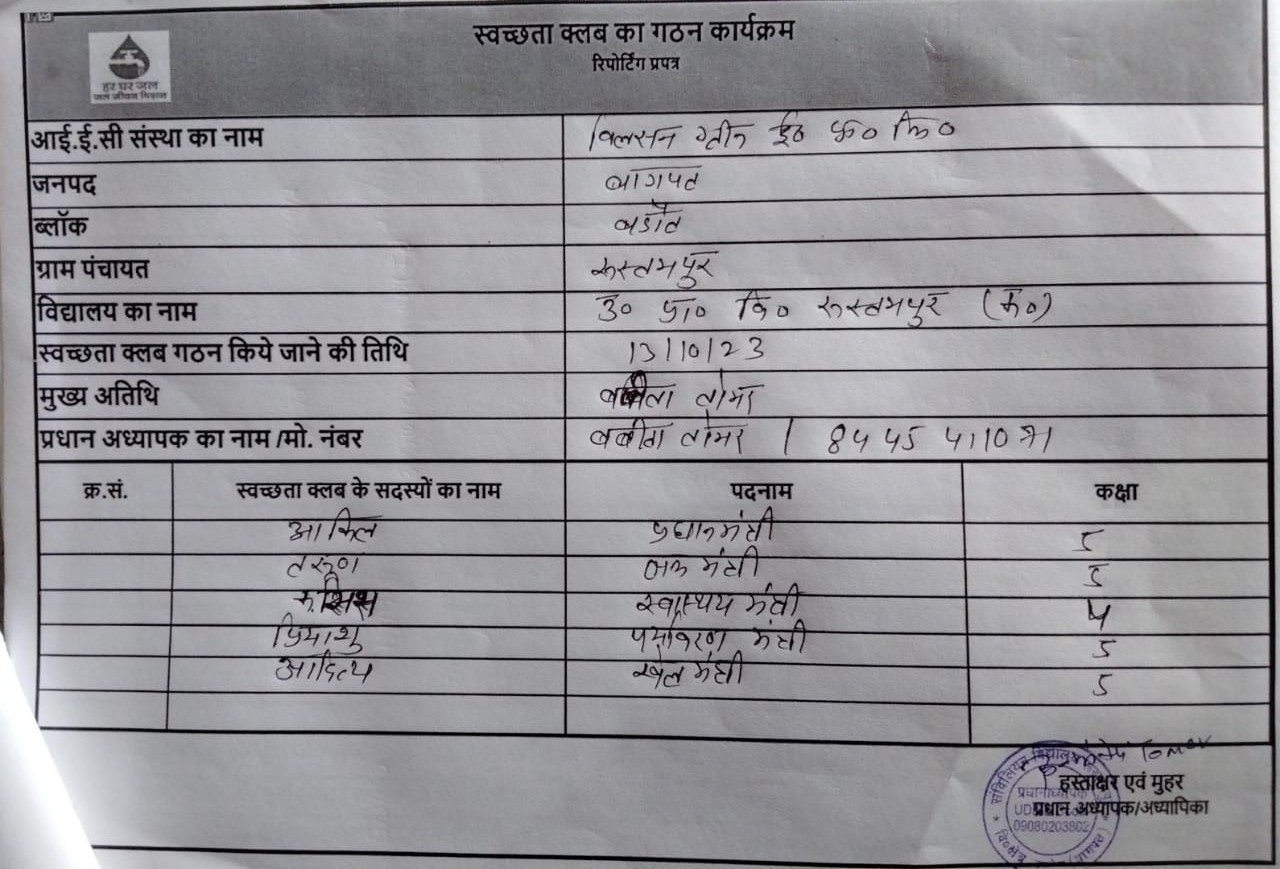 स्वच्छता क्लब का गठन कार्यक्रम
रिपोर्टिंग प्रपत्र
हर घर जल
जल जीवन मिशन
आई.ई.सी संस्था का नाम विलसन ग्रीन ई० प्रा० लि०
जनपद बागपत
ब्लॉक बडौत
ग्राम पंचायत रूस्तमपुर
विद्यालय का नाम उ० प्रा० वि० रूस्तमपुर (क०)
स्वच्छता क्लब गठन किये जाने की तिथि 13/10/23
मुख्य अतिथि बबीता तोमर
प्रधान अध्यापक का नाम /मो. नंबर बबीता तोमर / 8445411071
क्र.सं. स्वच्छता क्लब के सदस्यों का नाम पदनाम कक्षा
आकिल प्रधानमंत्री 5
तरूण मंत्री 5
स्वास्थय मंत्री 4
पर्यावरण मंत्री 5
आदित्य खेल मंत्री 5
Tomar
हस्ताक्षर एवं मुहर
प्रधान अध्यापक/अध्यापिका
प्रधानाध्यापक
09080203802